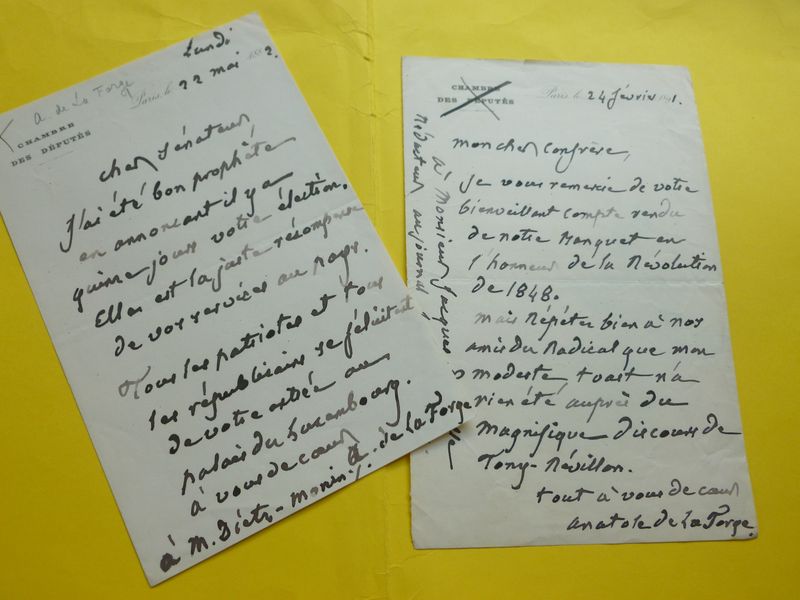 Lundi
A. de La Forge
Paris, le 22 mai 1882.
CHAMBRE
DES DÉPUTÉS
cher sénateur
J'ai été bon prophète
en annoncant il y a
quinze jours votre élection.
Elle est la juste récompense
de vos services au pays.
Tous les patriotes et tous
les républicains se félicitent
de votre entrée au
palais du Luxembourg.
à vous de cœur
A. de La Forge
à M. Dietz-Monin
CHAMBRE
DES DÉPUTÉS
Paris, le 24 février 1891.
mon cher confrère,
je vous remercie de votre
bienveillant compte rendu
de notre banquet en
l'honneur de la Révolution
de 1848.
mais Répétez bien à nos
amis du Radical que mon
modeste, toast n'a
rien été auprès du
magnifique discours de
Tony-Révillon.
tout à vous de cœur
Anatole de La Forge.
à Monsieur Jacques
Rédacteur au journal